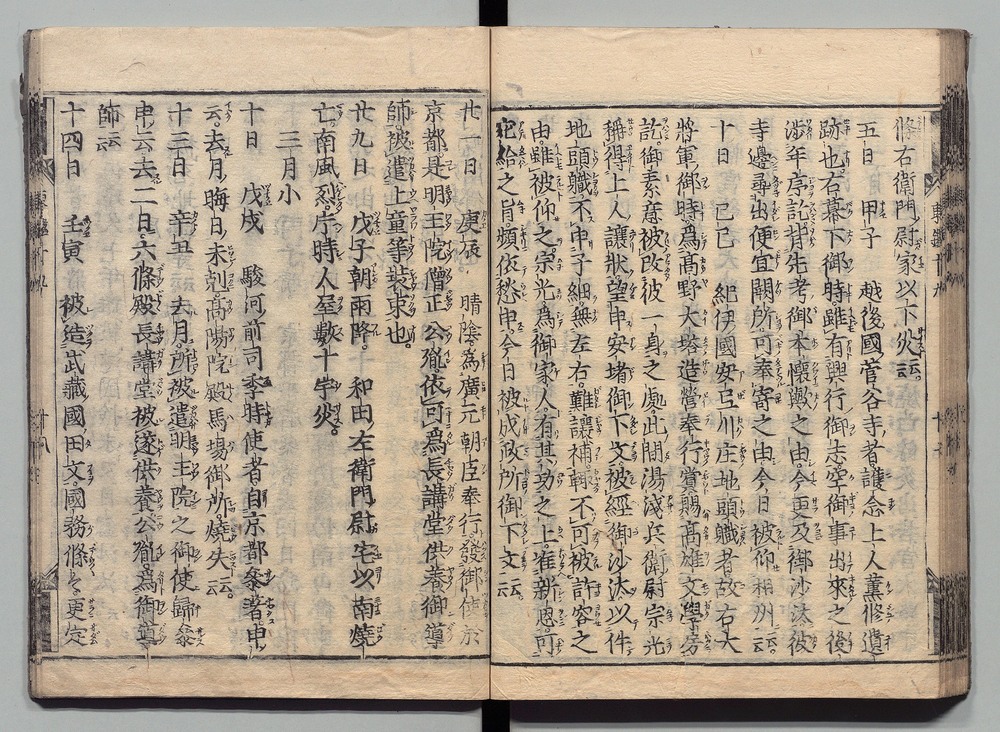 條右衛門尉家以下災云云
五日　甲子　越後國菅谷寺者護念上人薫修遺
跡也右幕下御時雖有興行御志空御事出來之後
渉年序訖背先考御本懷歟之由今更及御沙汰彼
寺邊尋出便宜闕所可奉寄之由今日被仰相州云云
十日　己巳　紀伊國安弖川庄地頭職者故右大
將軍御時爲高野大塔造營奉行賞賜高雄文學房
訖御素意被改彼一身之處此間湯淺兵衛尉宗光
稱得上人讓狀望申安堵御下文被經御沙汰以件
地頭職不申子細無左右難讓補輙不可被許容之
由雖被仰之宗光爲御家人有其功之上准新恩可
宛給之旨頻依愁申今日被成政所御下文云云
廿一日　庚辰　晴陰爲廣元朝臣奉行發御使於
京都是明王院僧正公胤依可爲長講堂供養御導
師被遣上童等裝束也
廿九日　戊子朝雨降　和田左衛門尉宅以南燒
亡南風烈序時人至數十宇災
三月小
十日　戊戌　駿河前司季時使者自京都參著申
云去月晦日未剋高陽院殿馬場御所燒失云云
十三日　辛丑　去月所被遣明王院之御使歸參
申云去二日六條殿長講堂被遂供養公胤爲御導
師云云
十四日　壬寅　被造武藏國田文國務條々更定